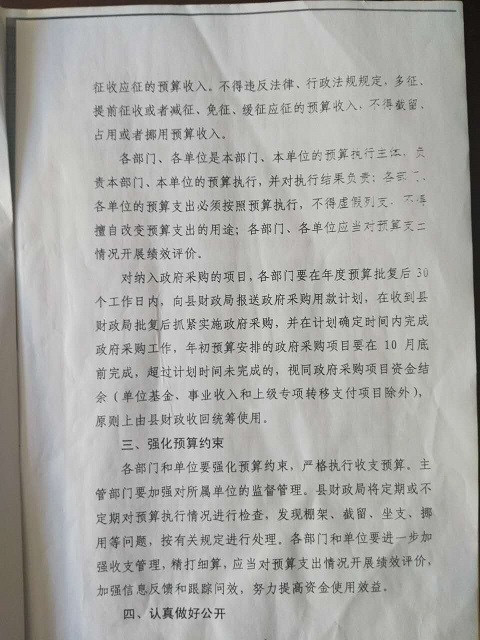 征收应征的预算收入。不得违反法律、行政法规规定，多征、
提前征收或者减征、免征、缓征应征的预算收入，不得截留、
占用或者挪用预算收入。
各部门、各单位是本部门、本单位的预算执行主体，负
责本部门、本单位的预算执行，并对执行结果负责；各部门、
各单位的预算支出必须按照预算执行，不得虚假列支，不得
擅自改变预算支出的用途；各部门、各单位应当对预算支出
情况开展绩效评价。
对纳入政府采购的项目，各部门要在年度预算批复后 30
个工作日内，向县财政局报送政府采购用款计划，在收到县
财政局批复后抓紧实施政府采购，并在计划确定时间内完成
政府采购工作，年初预算安排的政府采购项目要在 10 月底
前完成，超过计划时间未完成的，视同政府采购项目资金结
余（单位基金、事业收入和上级专项转移支付项目除外），
原则上由县财政收回统筹使用。
三、强化预算约束
各部门和单位要强化预算约束，严格执行收支预算。主
管部门要加强对所属单位的监督管理。县财政局将定期或不
定期对预算执行情况进行检查，发现棚架、截留、坐支、挪
用等问题，按有关规定进行处理。各部门和单位要进一步加
强收支管理，精打细算，应当对预算支出情况开展绩效评价，
加强信息反馈和跟踪问效，努力提高资金使用效益。
四、认真做好公开